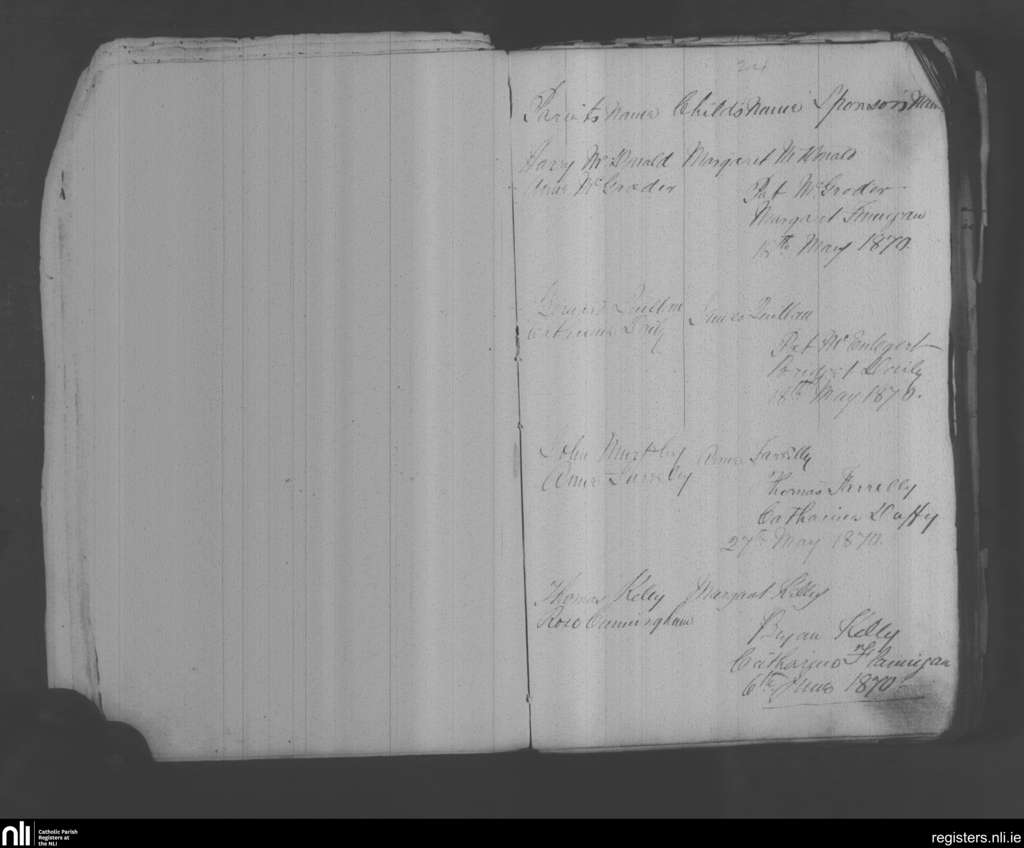 24
Parents Name Childs Name Sponsors Name
Harry McDonald Margaret McDonald
McGroder
Pat McGroder
Margaret Finnigan
May 1870
Quillan James Quillan
Catherine
Pat McEntegert
Bridget
18th May 1870.
John Murtby Anne Farrilly
Anne Farrily
Thomas Farrelly
Catharine Duffy
27th May 1870.
Thomas Kelly Margaret Kelly
Rose Cunningham
Bryan Kelly
Catharine Flannigan
6th June 1870
nli Catholic Parish
Registers at
the NLI
registers.nli.ie